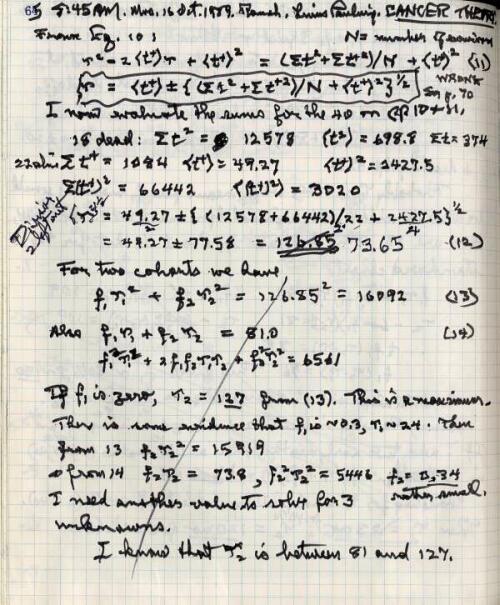 65 8:45 AM. Mon. 16 Oct. 1989. Ranch. Linus Pauling. CANCER THEORY.
From Eq. 10: N = number of
r² = 2⟨t⁺⟩r + ⟨t⁺⟩² = (Σt² + Σt⁺²)/N + ⟨t⁺⟩² (11)
r = ⟨t⁺⟩ ± {(Σt² + Σt⁺²)/N + ⟨t⁺⟩²}^½ WRONG
See p. 70
I now evaluate the sums for the 40 on pp 10 + 11.
18 dead: Σt² = 12578 ⟨t²⟩ = 698.8 Σt = 374
22 alive Σt⁺ = 1084 ⟨t⁺⟩ = 49.27 ⟨t⁺⟩² = 2427.5
Σ(t⁺)² = 66442 ⟨(t⁺)²⟩ = 3020
Division
2 left out
r = 49.27/2 ± {(12578 + 66442)/22 + 2427.5/4}^½
= 49.27 ± 77.58 = 126.85 73.65 (12)
For two cohorts we have
f₁r₁² + f₂r₂² = 126.85² = 16092 (13)
Also f₁r₁ + f₂r₂ = 81.0 (14)
f₁²r₁² + 2f₁f₂r₁r₂ + f₂²r₂² = 6561
If f₁ is zero, r₂ = 127 from (13). This is a maximum.
There is some evidence that f₁ is ~0.3, r₁ ~ 24. Then
from 13 f₂r₂² = 15919
& from 14 f₂r₂ = 73.8, f₂²r₂² = 5446 f₂ = 0.34
rather small.
I need another value to solve for 3
unknowns.
I know that r₂ is between 81 and 127.